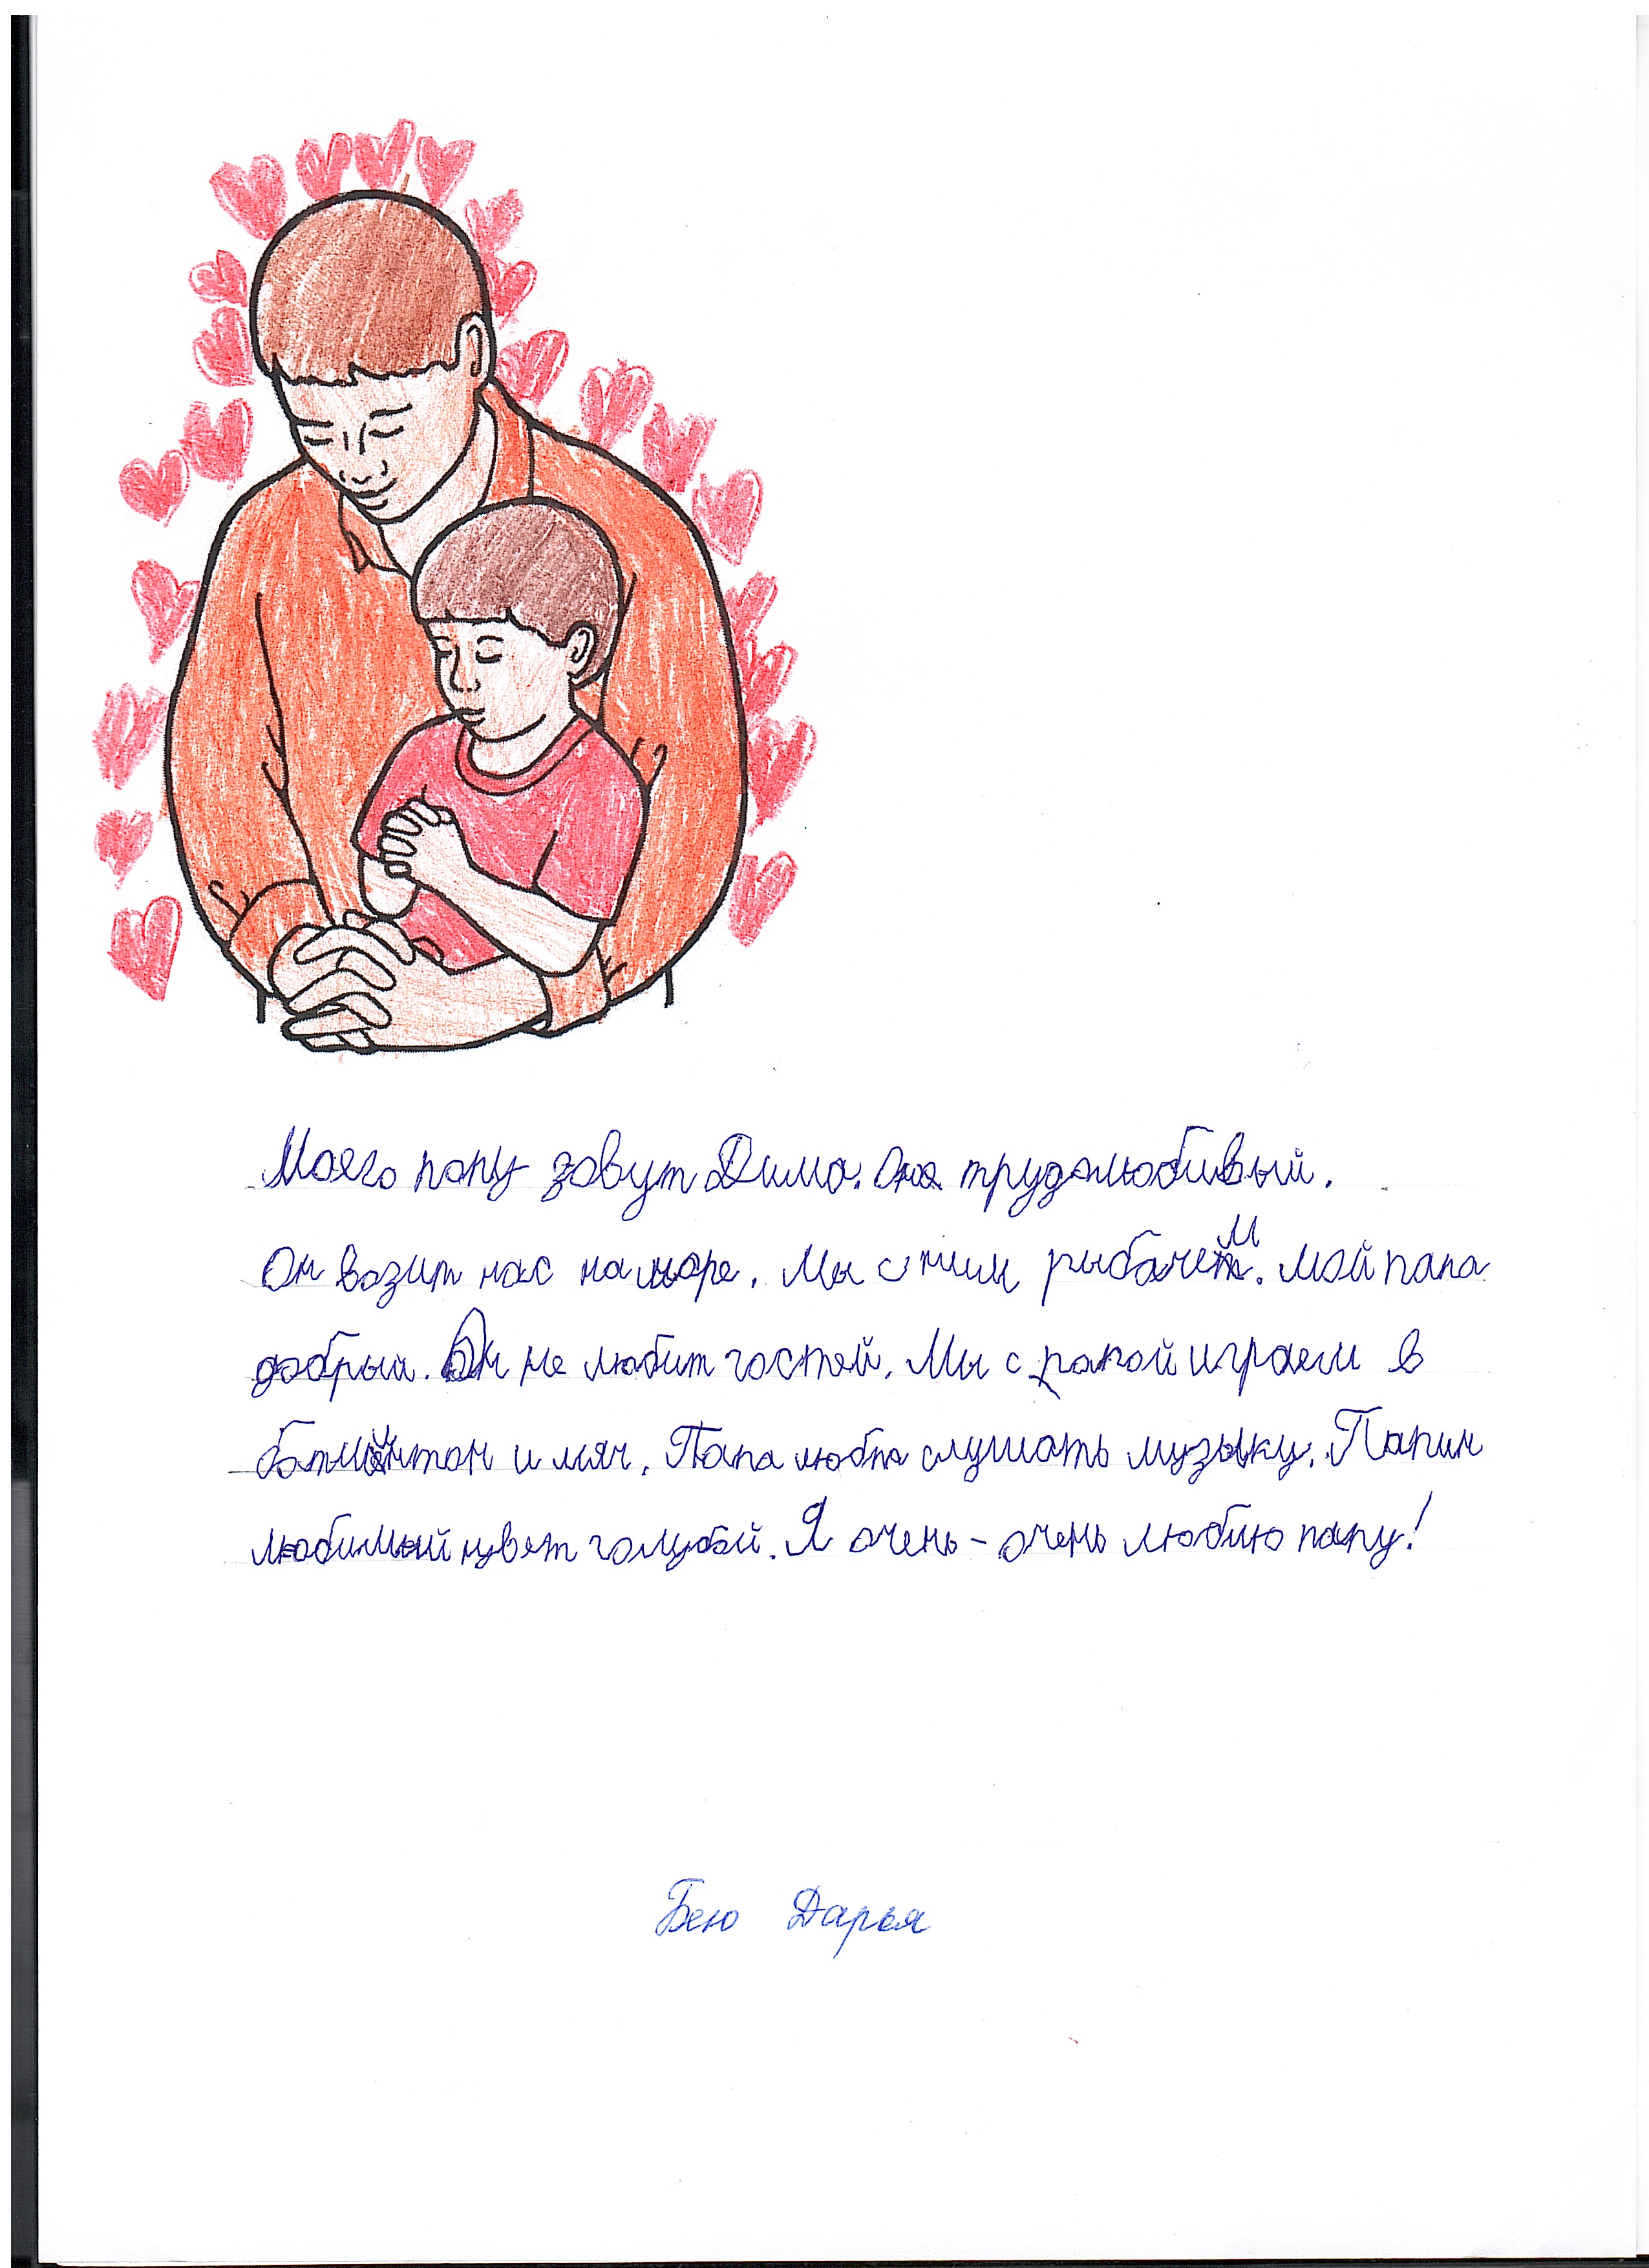 Моего папу зовут Дима. Он трудолюбивый.
Он возит нас на море. Мы с ним рыбачем. Мой папа
добрый. Он не любит гостей. Мы с папой играем в
батминтон и мяч. Папа любит слушать музыку. Папин
любимый цвет голубой. Я очень-очень люблю папу!
Бею Дарья